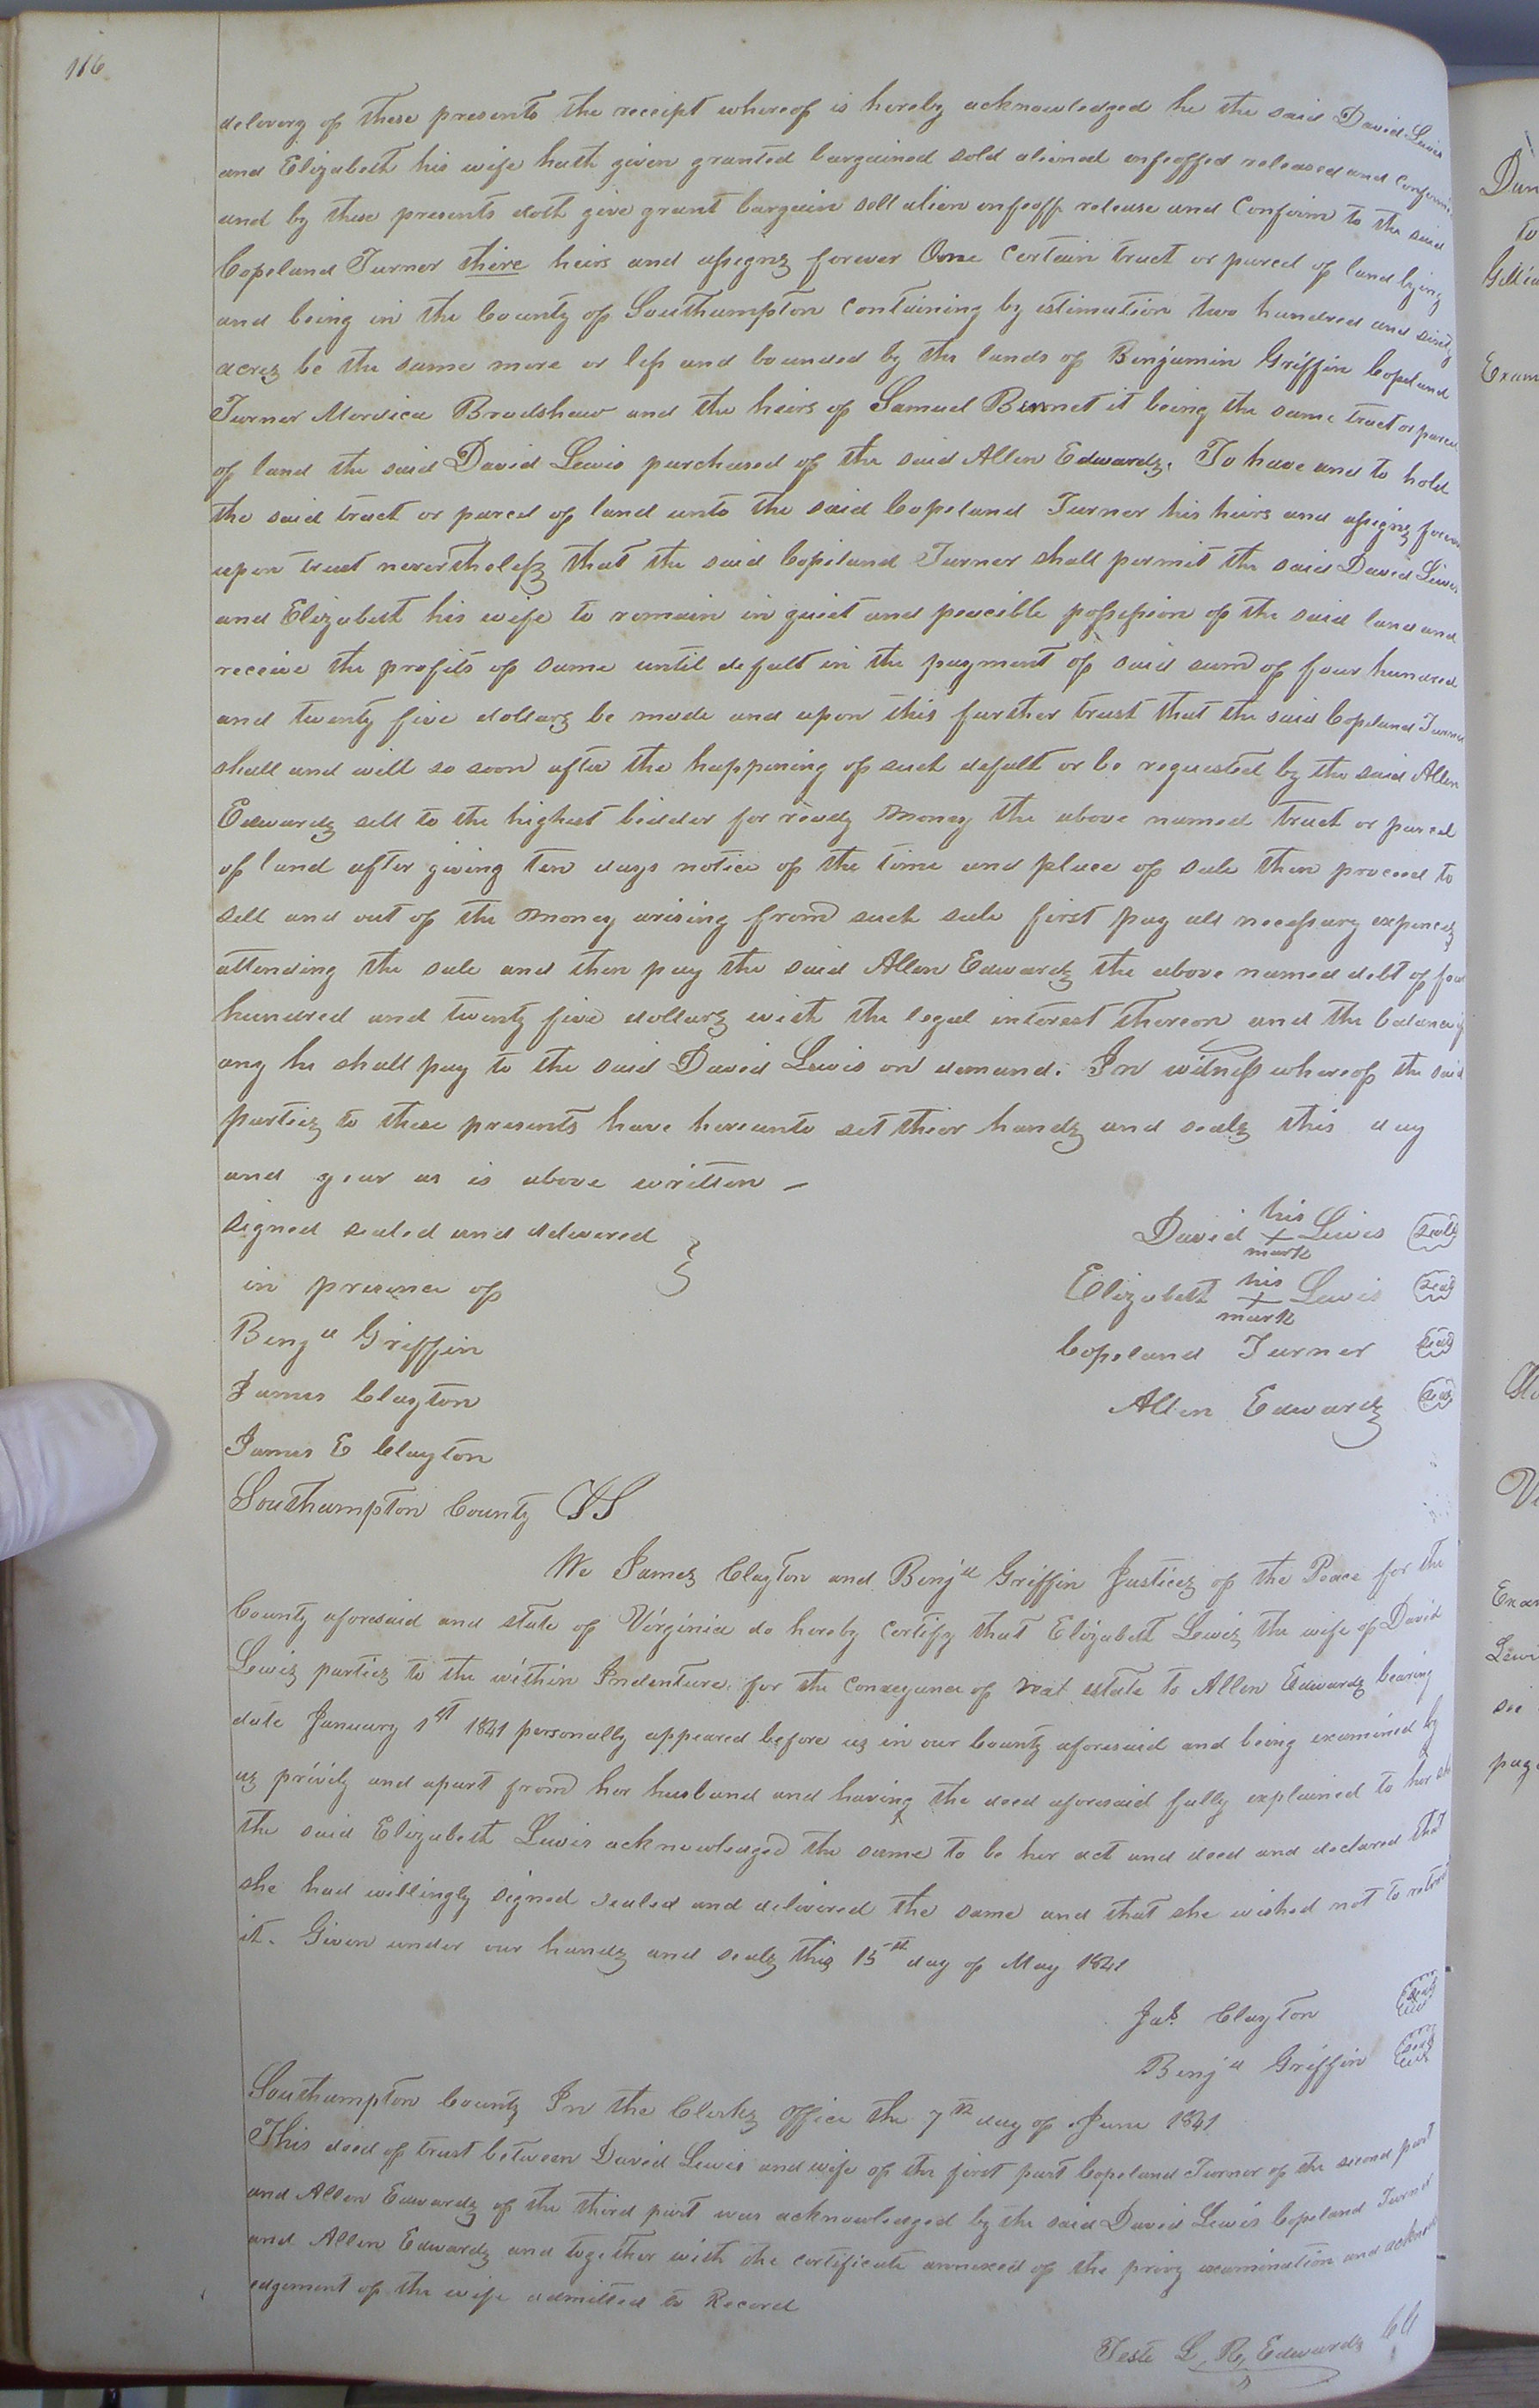 116
delovery of these presents the receipt whereof is hereby acknowledged he the said David Lewis
and Elizabeth his wife hath given granted bargained sold aliened enfeoffed released and confirmed
and by these presents doth give grant bargain sell alien enfeoff release and Confirm to the said
Copeland Turner thire heirs and assigns forever One Certain tract or parcel of land lying
and being in the County of Southampton Containing by estimation two hundred and sixty
acres be the same more or less and bounded by the lands of Benjamin Griffin Copeland
Turner Mordica Bradshaw and the heirs of Samuel it being the same tract or parcel
of land the said David Lewis purchased of the said Allen Edwards. To have and to hold
the said tract or parcel of land unto the said Copeland Turner his heirs and assigns forever
upon trust nevertheless that the said Copeland Turner shall permit the said David Lewis
and Elizabeth his wife to remain in quiet and peacible possession of the said land and
receive the profits of same until defalt in the payment of said sum of four hundred
and twenty five dollars be made and upon this further trust that the said Copeland Turner
shall and will so soon after the happening of such defalt or be requested by the said Allen
Edwards sell to the highest bidder for ready money the above named tract or parcel
of land after giving ten days notice of the time and place of sale then proceed to
sell and out of the money arising from such sale first pay all necessary expences
attending the sale and then pay the said Allen Edwards the above named debt of four
hundred and twenty five dollars with the legal interest thereon and the balance if
any he shall pay to the said David Lewis on demand. In witness whereof the said
parties to these presents have hereunto set their hands and seals this day
and year as is above written –
signed sealed and delivered
in presence of
Benja Griffin
James Clayton
James E Clayton
David his + mark Lewis seal
Elizabeth his + mark Lewis seal
Copeland Turner seal
Allen Edwards seal
Southampton County SS
We James Clayton and Benja Griffin Justices of the Peace for the
County aforesaid and state of Virginia do hereby Certify that Elizabeth Lewis the wife of David
Lewis parties to the within Indenture for the Conveyance of real estate to Allen Edwards bearing
date January 1st 1841 personally appeared before us in our County aforesaid and being examined by
us privily and apart from her husband and having the deed aforesaid fully explained to her she
the said Elizabeth Lewis acknowledged the same to be her act and deed and declared that
she had willingly signed sealed and delivered the same and that she wished not to retract
it. Given under our hands and seals this 15st day of May 1841
Jas. Clayton seal
Benja Griffin seal
Southampton County In the Clerks Office the 7th day of June 1841
This deed of trust between David Lewis and wife of the first part Copeland Turner of the second part
and Allen Edwards of the third part was acknowledged by the said David Lewis Copeland Turner
and Allen Edwards and together with the certificate annexed of the privy examination and acknowl
edgement of the wife admitted to Record
Teste L. R. Edwards